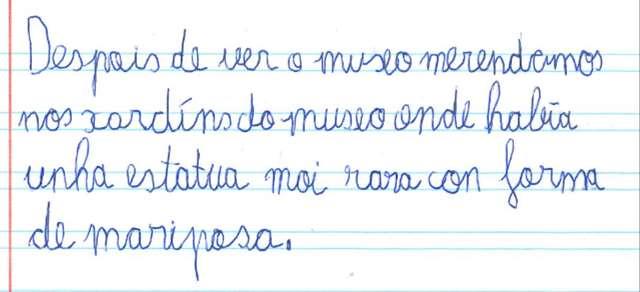 Despois de ver o museo merendamos
nos xardíns do museo onde había
unha estatua moi rara con forma
de mariposa.